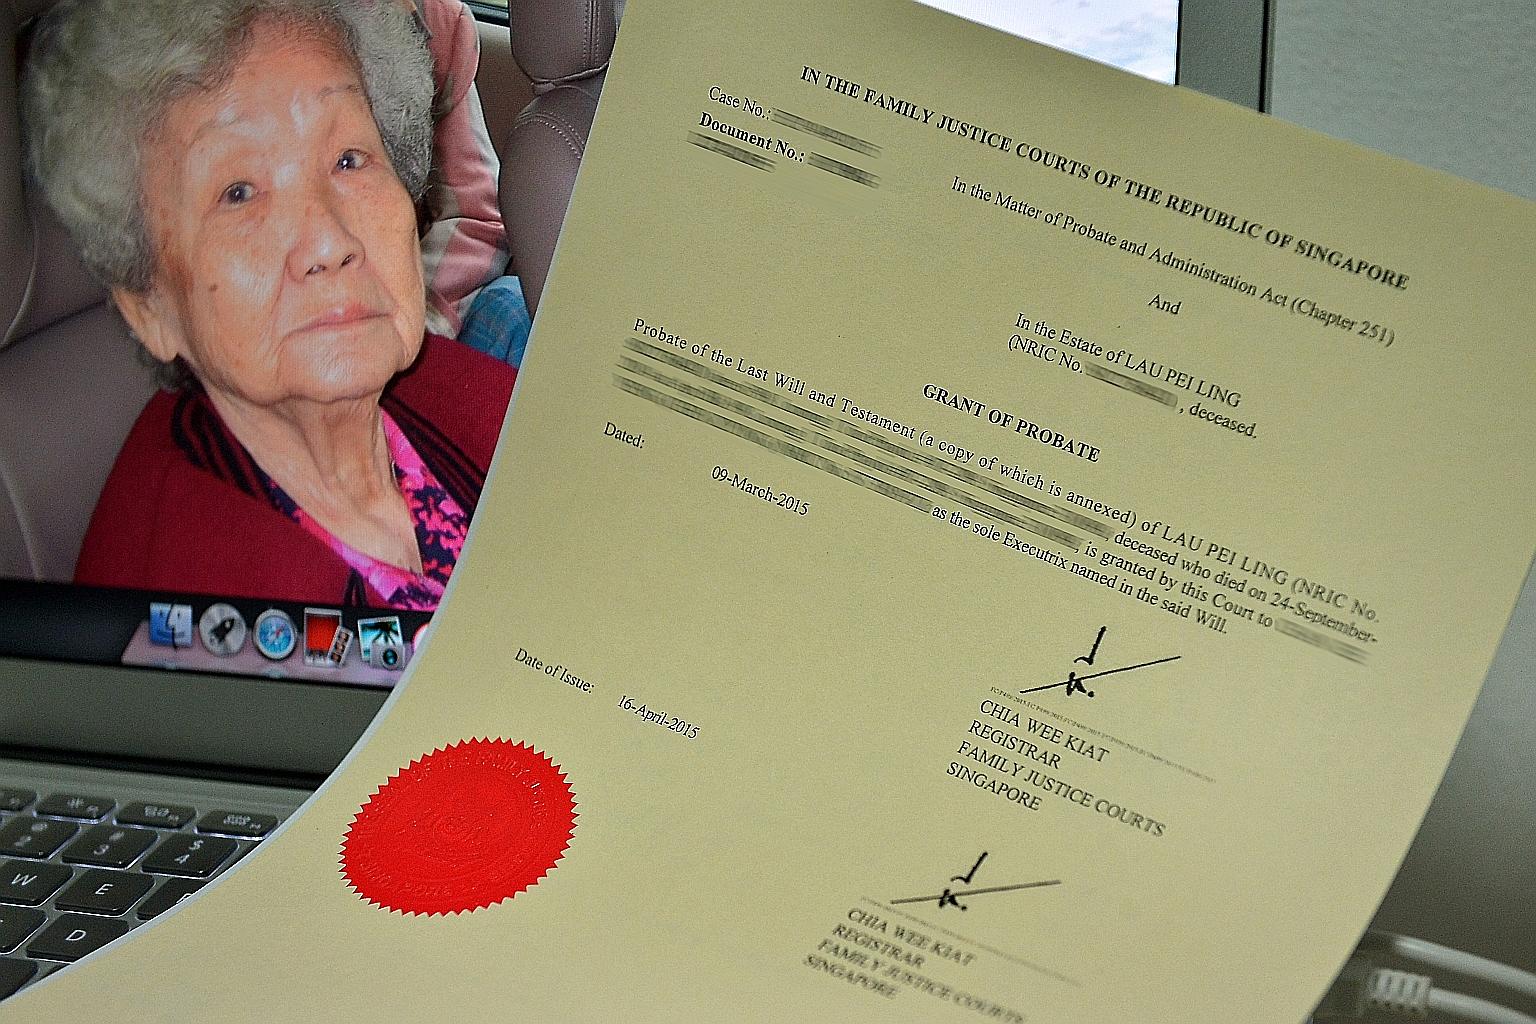 IN THE FAMILY JUSTICE COURTS OF THE REPUBLIC OF SINGAPORE
Case No.:
Document No.:
In the Matter of Probate and Administration Act (Chapter 251)
And
In the Estate of LAU PEI LING
(NRIC No. , deceased.
GRANT OF PROBATE
Probate of the Last Will and Testament (a copy of which is annexed) of LAU PEI LING (NRIC No.
, deceased who died on 24-September-
, is granted by this Court to
as the sole Executrix named in the said Will.
Dated:
09-March-2015
Date of Issue:
16-April-2015
CHIA WEE KIAT
REGISTRAR
FAMILY JUSTICE COURTS
SINGAPORE
CHIA WEE KIAT
REGISTRAR
FAMILY JUSTICE COURTS
SINGAPORE
2
3
$
4
W
E
D